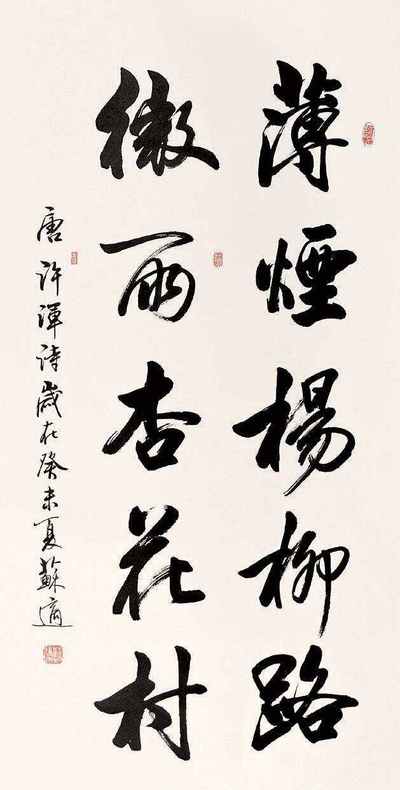 薄煙楊柳路
微雨杏花村
唐許渾詩歲在癸未夏蘇適